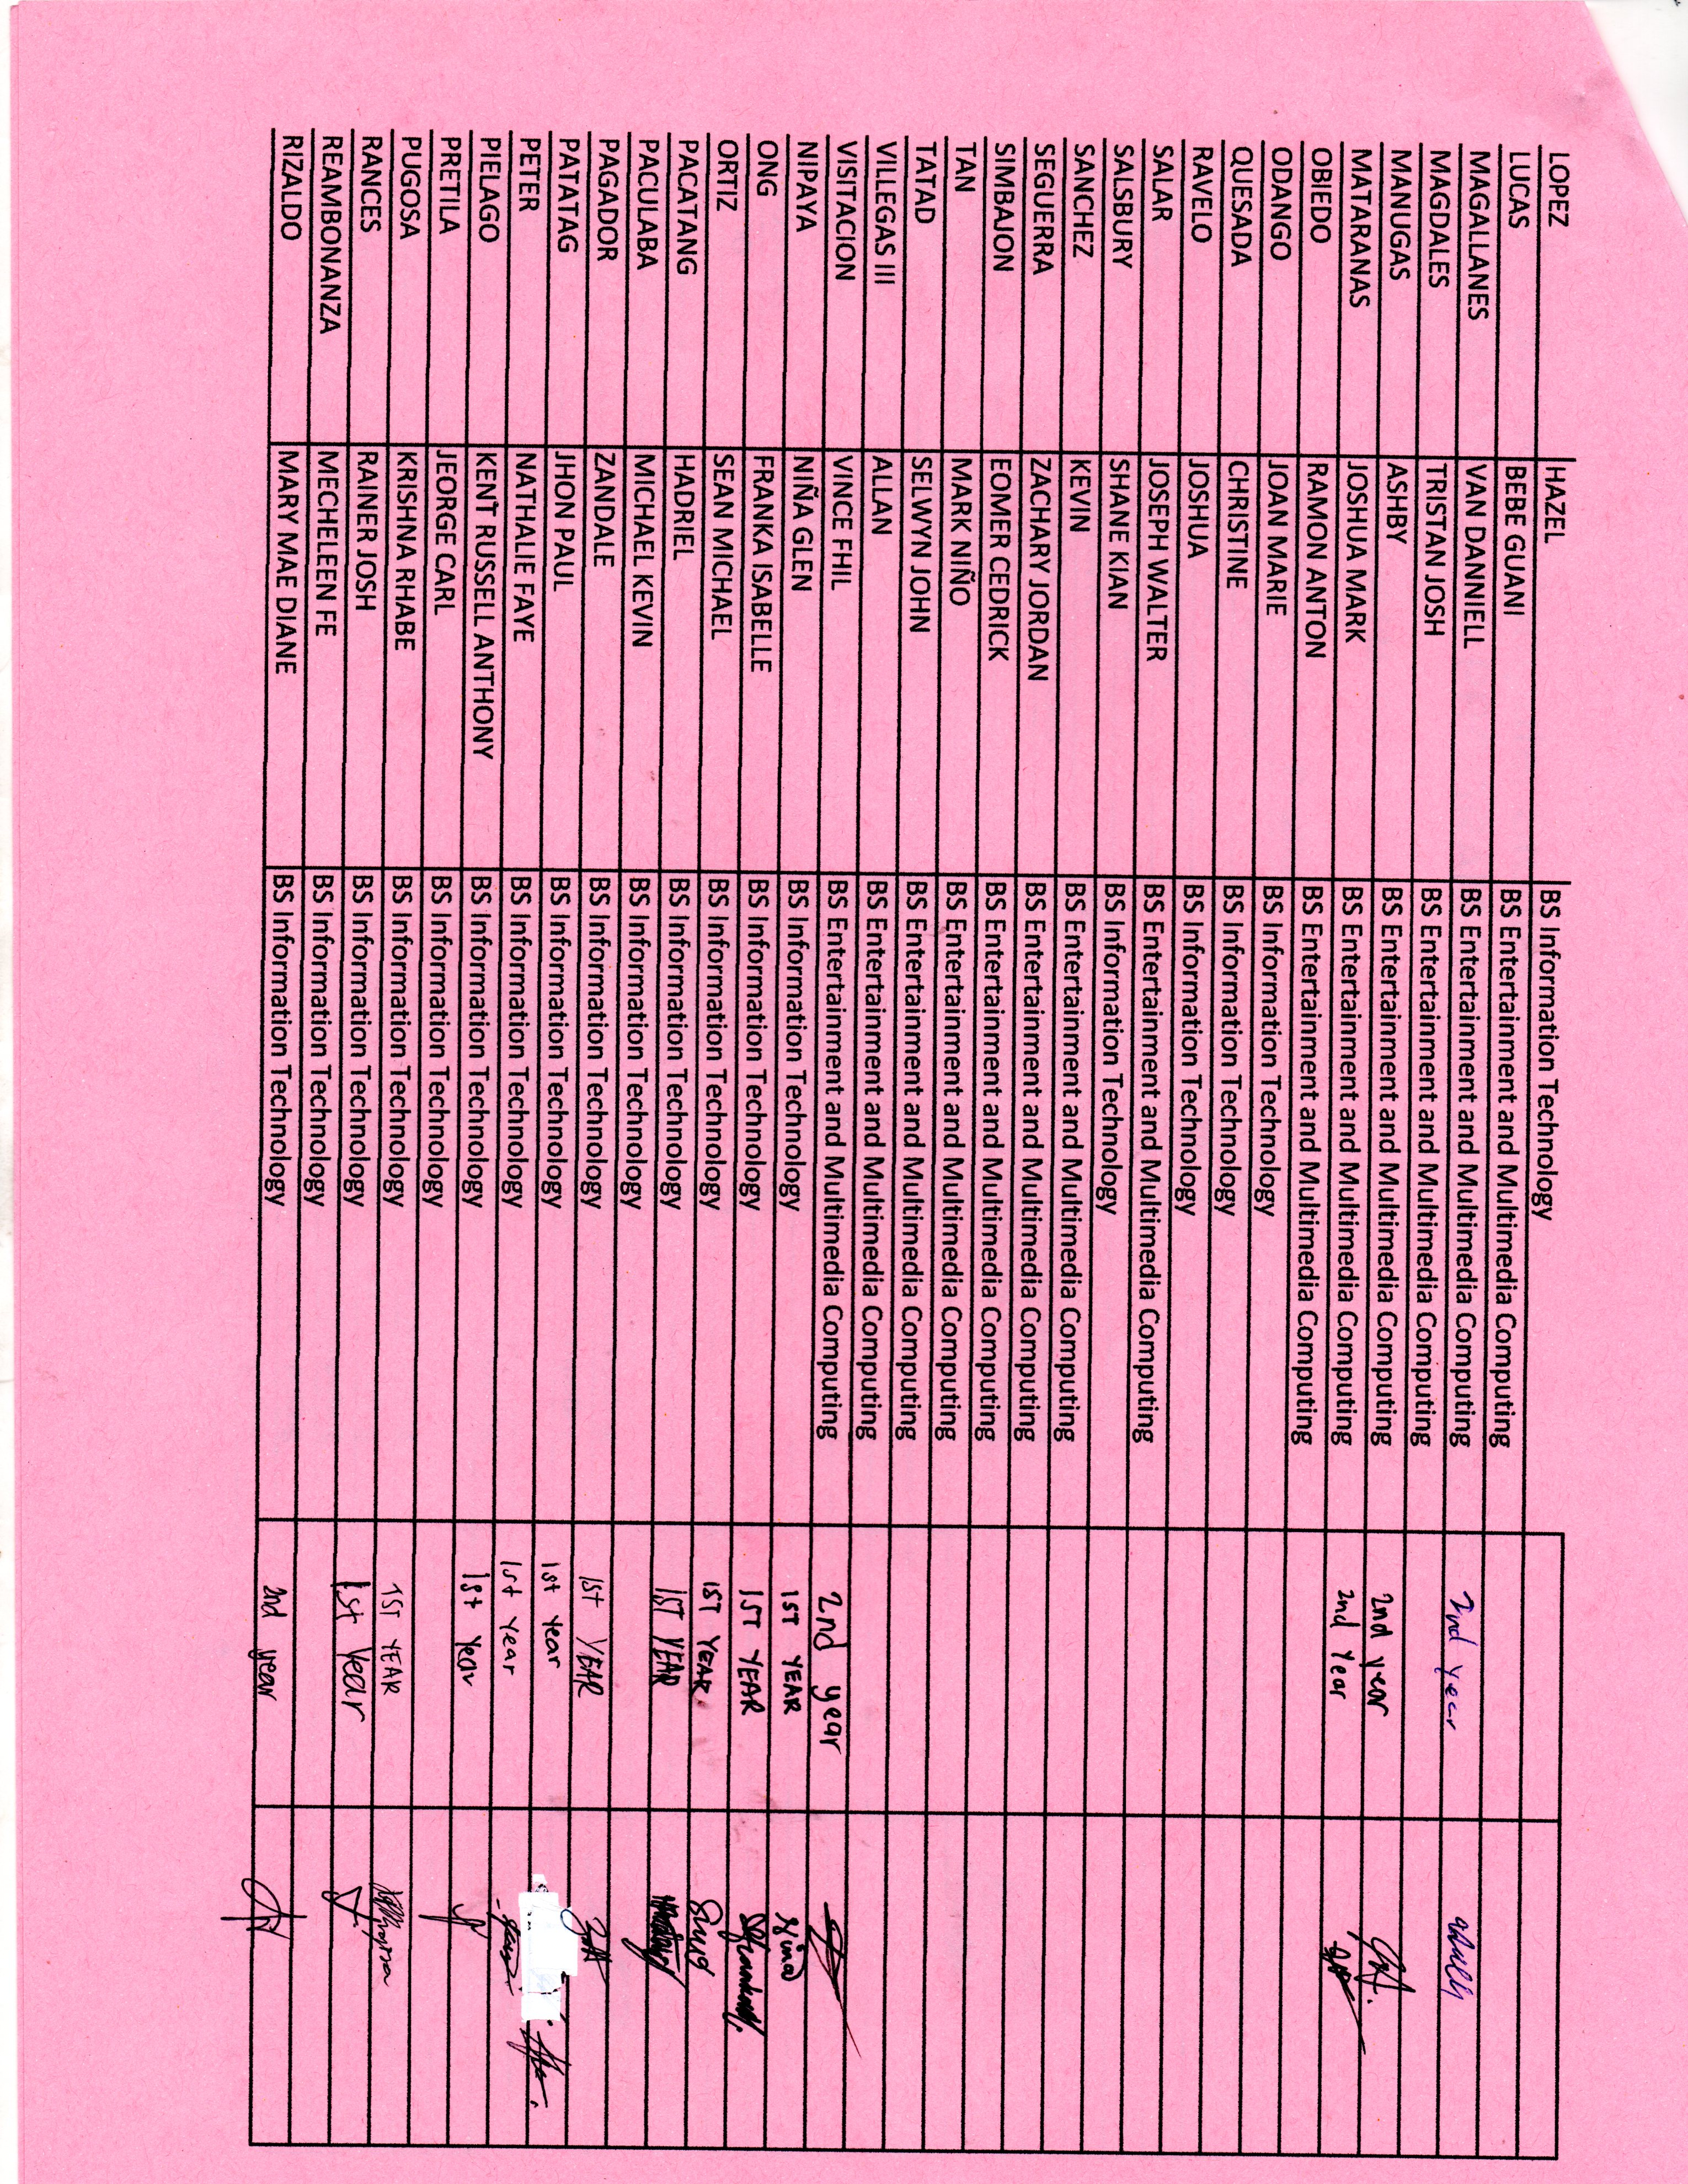 LOPEZ HAZEL BS Information Technology
LUCAS BEBE GUANI BS Entertainment and Multimedia Computing
MAGALLANES VAN DANNIELL BS Entertainment and Multimedia Computing 2nd year
MAGDALES TRISTAN JOSH BS Entertainment and Multimedia Computing
MANUGAS ASHBY BS Entertainment and Multimedia Computing 2nd year
MATARANAS JOSHUA MARK BS Entertainment and Multimedia Computing 2nd Year
OBIEDO RAMON ANTON BS Entertainment and Multimedia Computing
ODANGO JOAN MARIE BS Information Technology
QUESADA CHRISTINE BS Information Technology
RAVELO JOSHUA BS Information Technology
SALAR JOSEPH WALTER BS Entertainment and Multimedia Computing
SALSBURY SHANE KIAN BS Information Technology
SANCHEZ KEVIN BS Entertainment and Multimedia Computing
SEGUERRA ZACHARY JORDAN BS Entertainment and Multimedia Computing
SIMBAJON EOMER CEDRICK BS Entertainment and Multimedia Computing
TAN MARK NIÑO BS Entertainment and Multimedia Computing
TATAD SELWYN JOHN BS Entertainment and Multimedia Computing
VILLEGAS III ALLAN BS Entertainment and Multimedia Computing
VISITACION VINCE FHIL BS Entertainment and Multimedia Computing 2nd year
NIPAYA NIÑA GLEN BS Information Technology 1ST YEAR
ONG FRANKA ISABELLE BS Information Technology 1ST YEAR
ORTIZ SEAN MICHAEL BS Information Technology 1ST YEAR
PACATANG HADRIEL BS Information Technology 1ST YEAR
PACULABA MICHAEL KEVIN BS Information Technology
PAGADOR ZANDALE BS Information Technology 1ST YEAR
PATATAG JHON PAUL BS Information Technology 1st Year
PETER NATHALIE FAYE BS Information Technology 1st Year
PIELAGO KENT RUSSELL ANTHONY BS Information Technology 1st Year
PRETILA JEORGE CARL BS Information Technology
PUGOSA KRISHNA RHABE BS Information Technology 1ST YEAR
RANCES RAINER JOSH BS Information Technology 1st Year
REAMBONANZA MECHELEEN FE BS Information Technology
RIZALDO MARY MAE DIANE BS Information Technology 2nd year